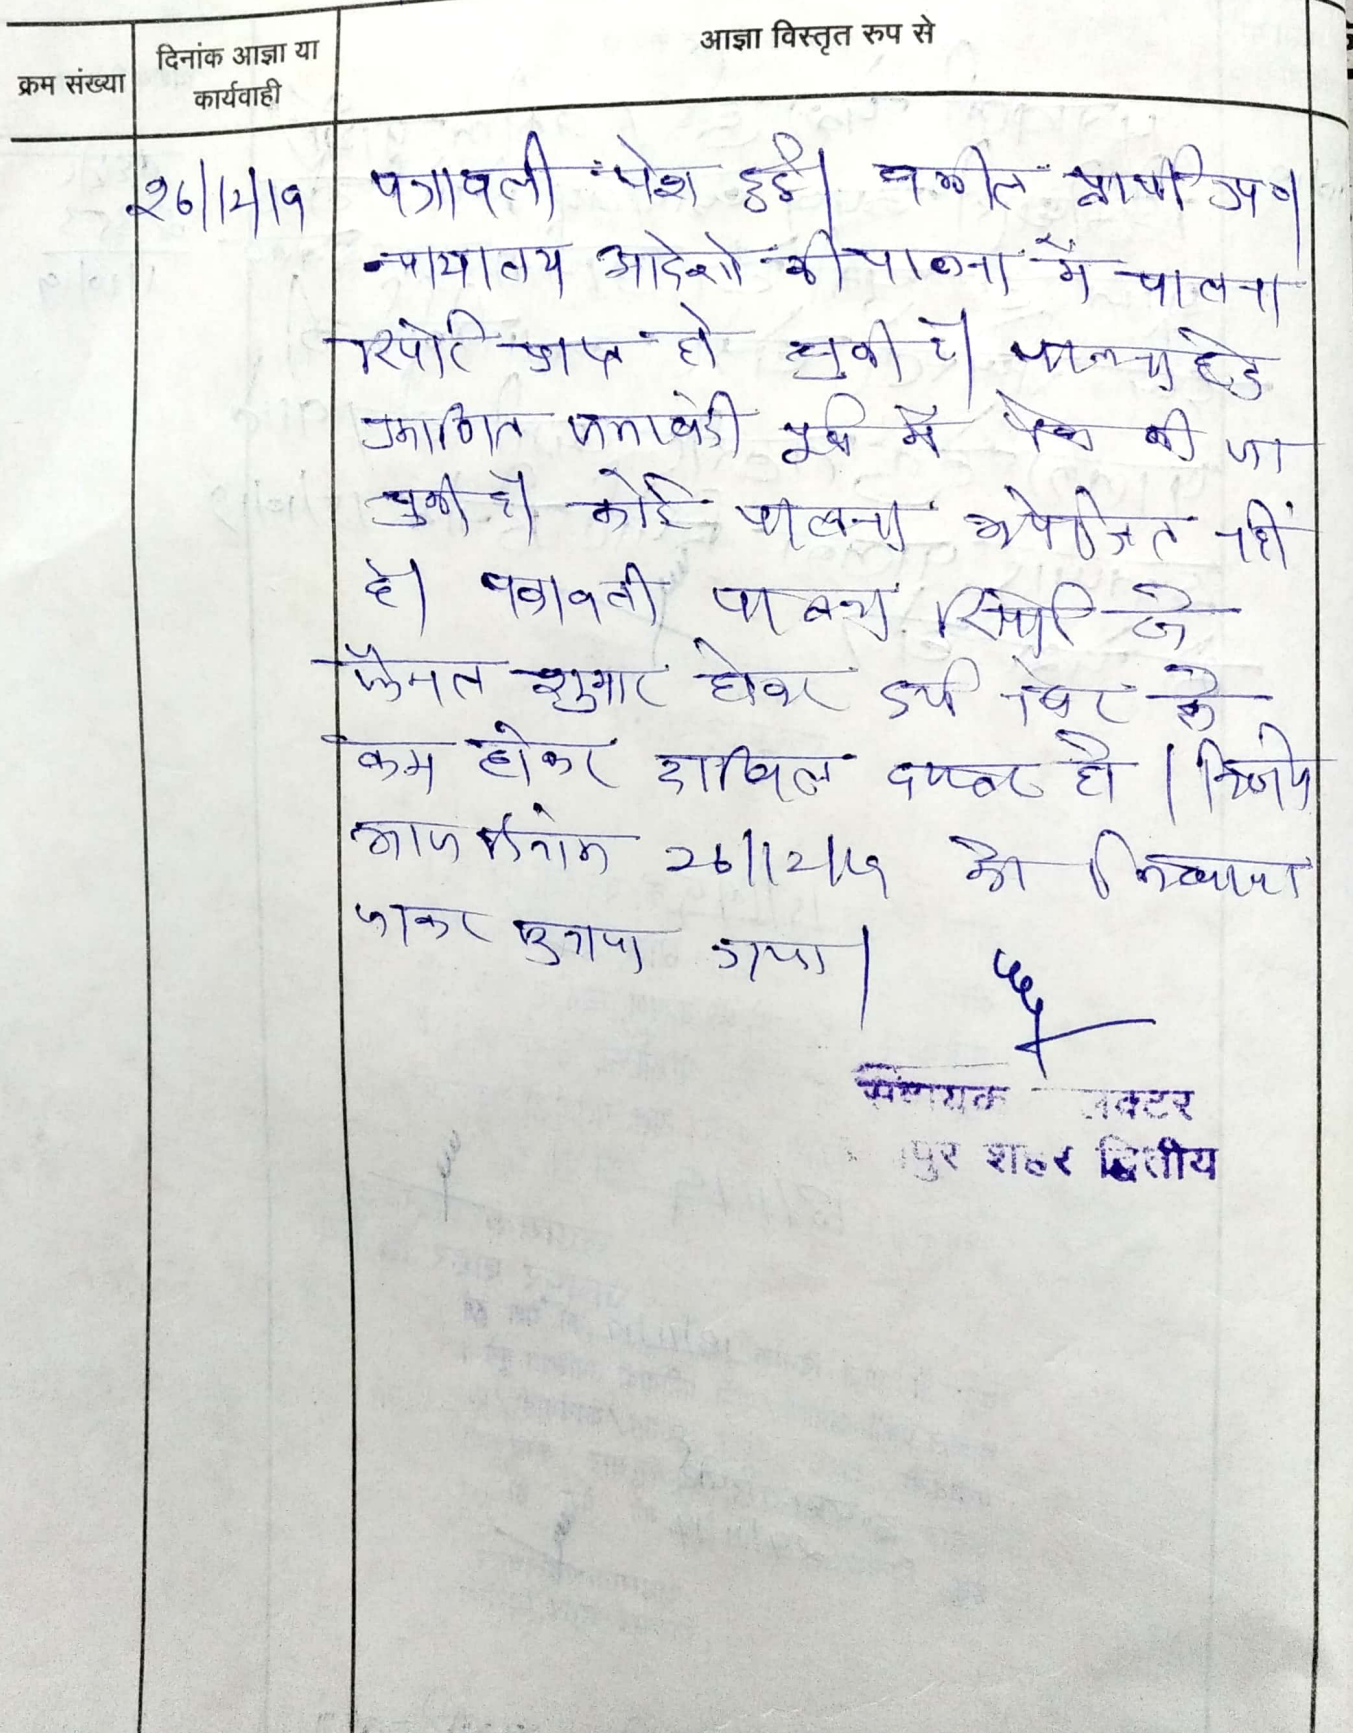 क्रम संख्या
दिनांक आज्ञा या
कार्यवाही
आज्ञा विस्तृत रुप से
26/12/19
पत्रावली पेश हुई। वकील प्रार्थी उप०
न्यायालय आदेशो की पालना में पालना
रिपोर्ट प्राप्त हो चुकी है। पालना हेतु
प्रमाणित जमाबंदी पूर्व में पेश की जा
चुकी है। कोई पालना अपेक्षित नहीं
है। पत्रावली पालना रिपोर्ट के
फैसल शुमार होकर दर्ज नंबर से
कम होकर दाखिल दफ्तर हो। निर्णय
आज दिनांक 26/12/19 को लिखाया
जाकर सुनाया गया।
सहायक क्टर
पुर शहर द्वितीय